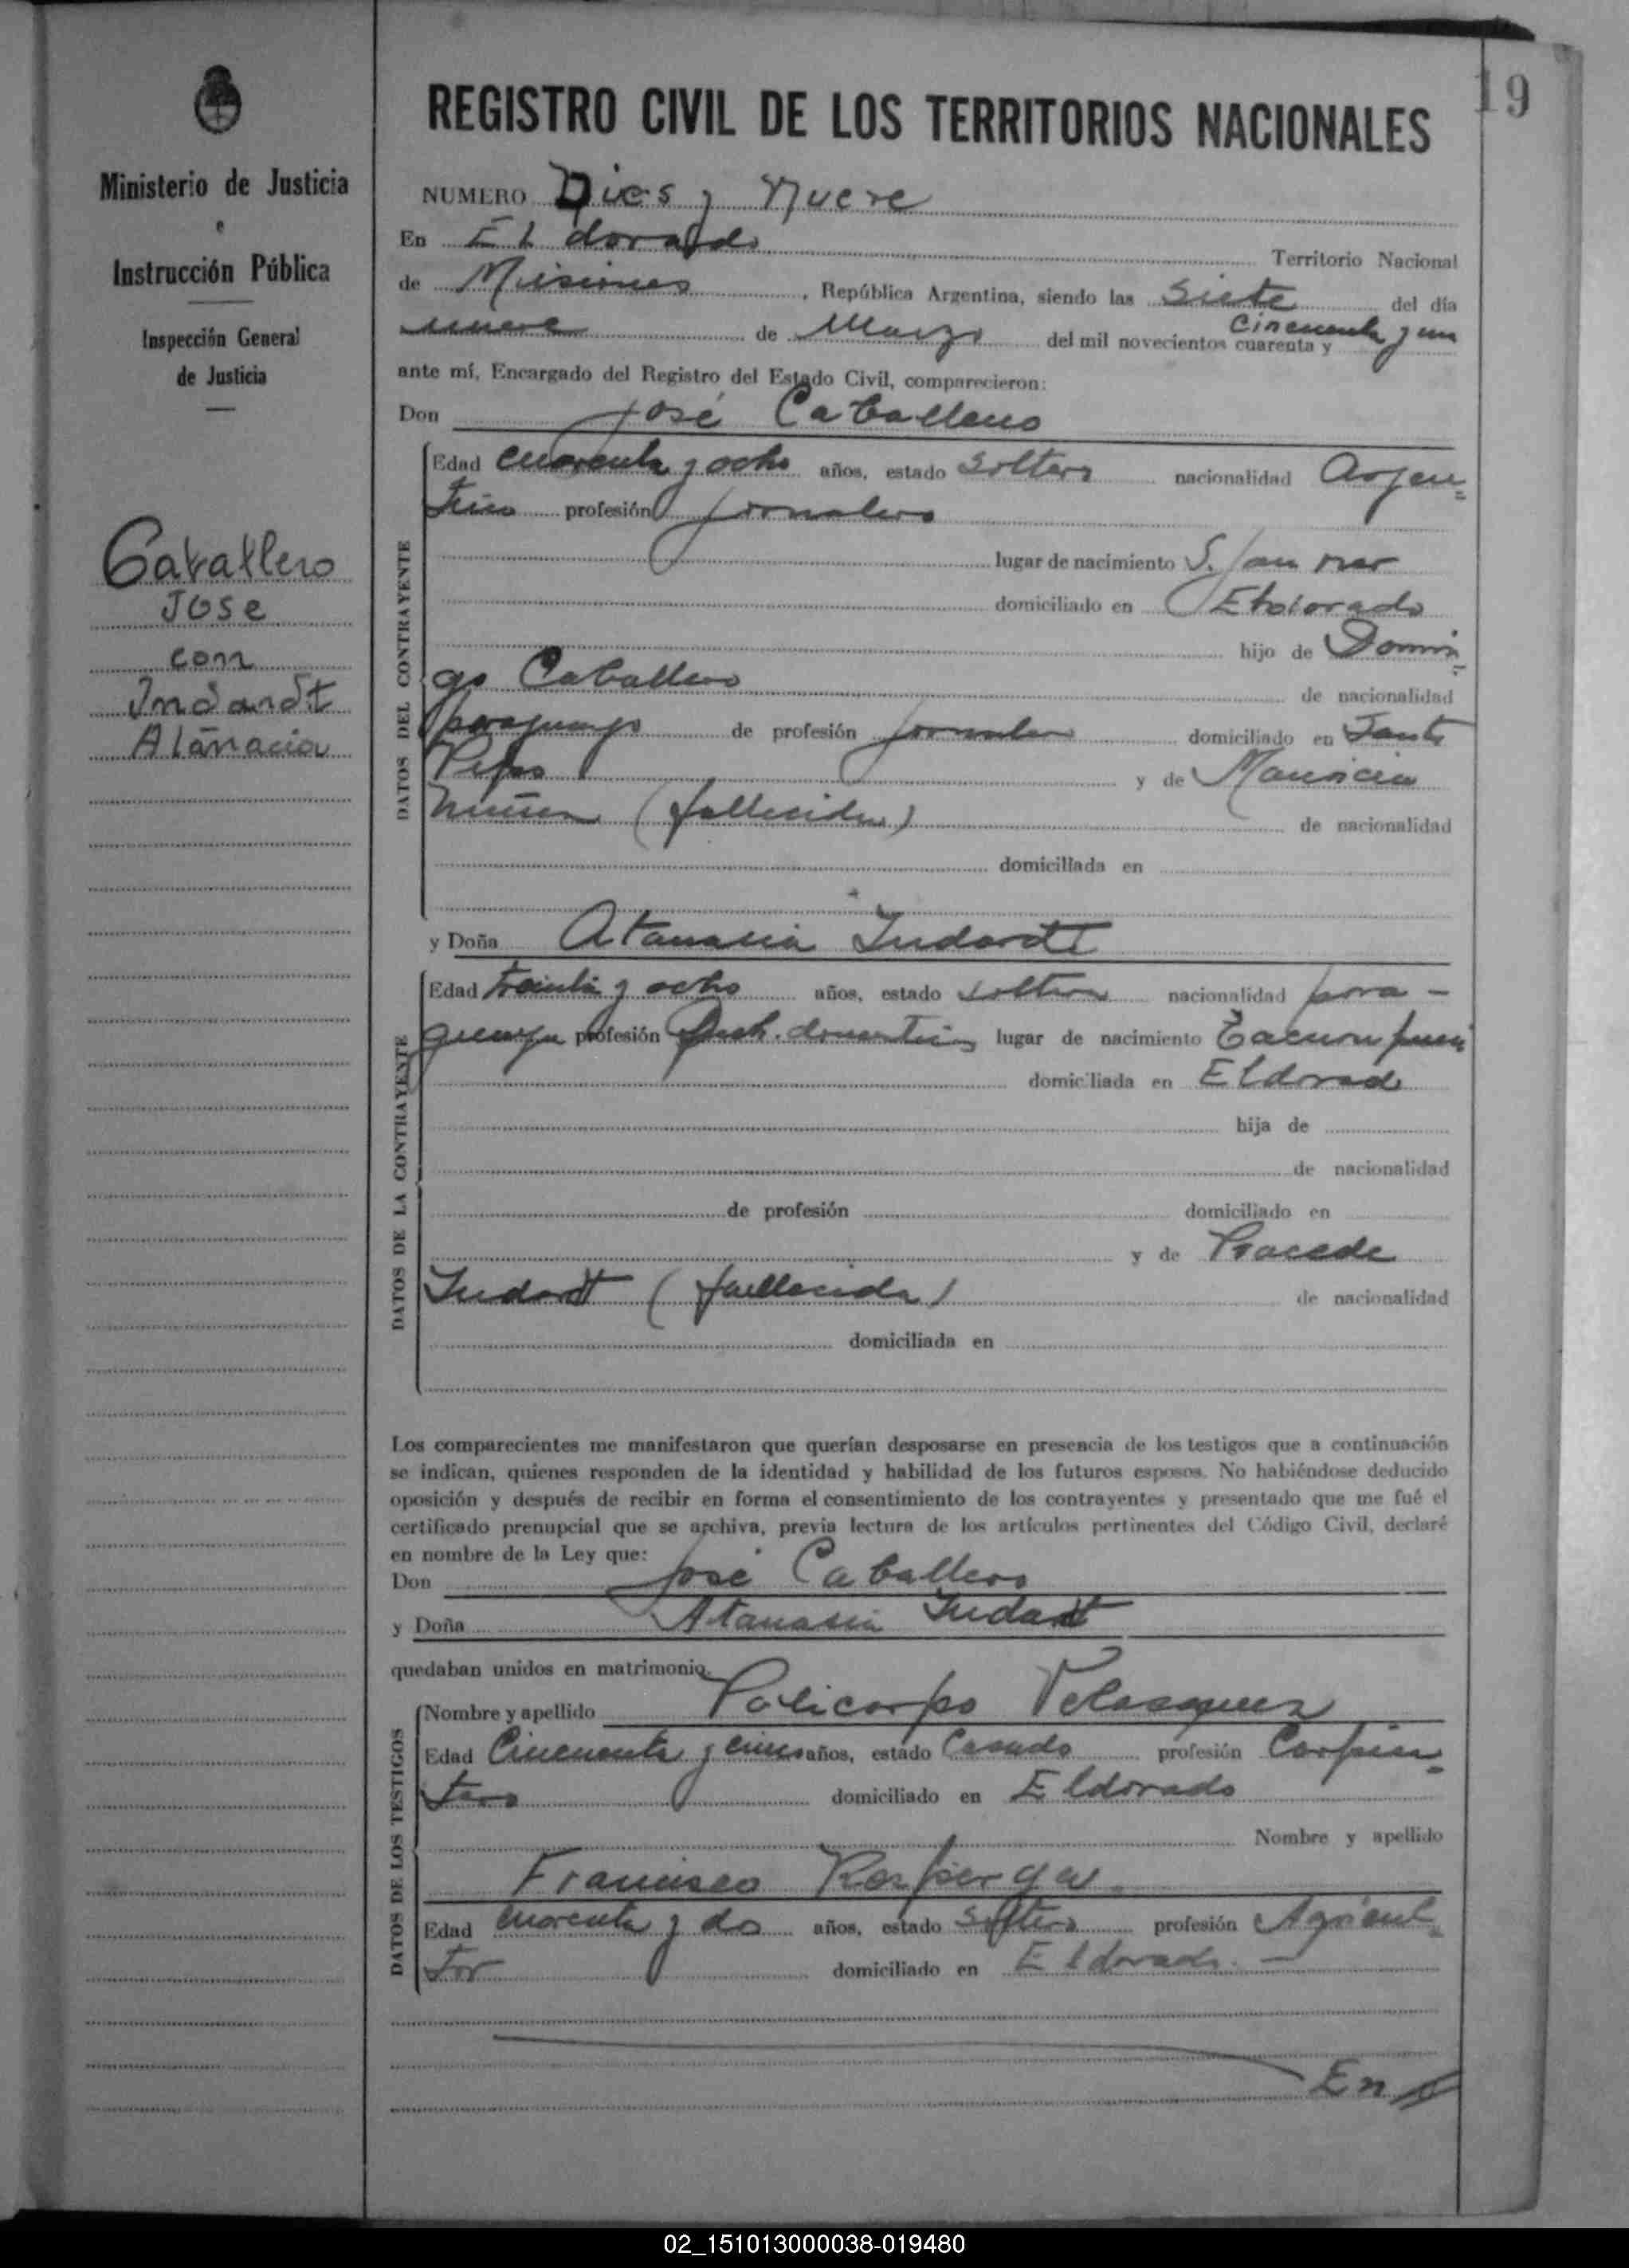 19
Ministerio de Justicia
e
Instrucción Pública
Inspección General
de Justicia
Caballero
Jose
con
Indardt
Atanacia
REGISTRO CIVIL DE LOS TERRITORIOS NACIONALES
NUMERO Dies y Nueve
En Eldorado Territorio Nacional
de Misiones, República Argentina, siendo las Siete del día
nueve de Marzo del mil novecientos cuarenta y cincuenta y un
ante mí, Encargado del Registro del Estado Civil, comparecieron:
Don José Caballero
DATOS DEL CONTRAYENTE
Edad cuarenta y ocho años, estado soltero nacionalidad Argen=
tino profesión jornalero
lugar de nacimiento S.
domiciliado en Eldorado
hijo de Domin-
go Caballero de nacionalidad
paraguayo de profesión jornalero domiciliado en
Pipo y de Mauricia
(fallecida) de nacionalidad
domiciliada en
y Doña Atanasia Indardt
DATOS DE LA CONTRAYENTE
Edad treinta y ocho años, estado soltera nacionalidad para-
guaya profesión lugar de nacimiento
domiciliada en Eldorado
hija de
de nacionalidad
de profesión domiciliado en
y de
Indardt (fallecida) de nacionalidad
domiciliada en
Los comparecientes me manifestaron que querían desposarse en presencia de los testigos que a continuación
se indican, quienes responden de la identidad y habilidad de los futuros esposos. No habiéndose deducido
oposición y después de recibir en forma el consentimiento de los contrayentes y presentado que me fué el
certificado prenupcial que se archiva, previa lectura de los artículos pertinentes del Código Civil, declaré
en nombre de la Ley que:
Don José Caballero
y Doña Atanasia Indardt
quedaban unidos en matrimonio.
DATOS DE LOS TESTIGOS
Nombre y apellido Policarpo Velasquez
Edad Cincuenta y cinco años, estado Casado profesión Carpin-
tero domiciliado en Eldorado
Nombre y apellido
Francisco
Edad cuarenta y dos años, estado soltero profesión Agricul-
tor domiciliado en Eldorado.-
En
02_151013000038-019480